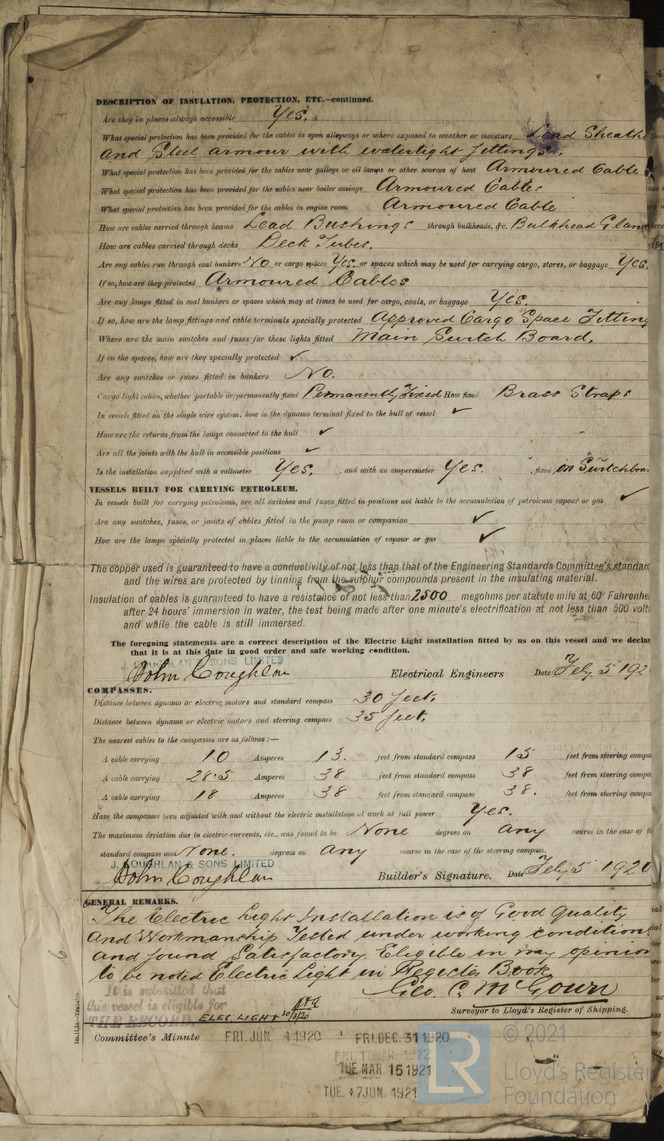 DESCRIPTION OF INSULATION, PROTECTION, ETC.—continued.
Are they in places always accessible Yes.
What special protection has been provided for the cables in open alleyways or where exposed to weather or moisture Lead Sheathe
and Steel armour with watertight fittings.
What special protection has been provided for the cables near galleys or oil lamps or other sources of heat Armoured Cable
What special protection has been provided for the cables near boiler casings Armoured Cables
What special protection has been provided for the cables in engine room Armoured Cable
How are cables carried through beams Lead Bushings through bulkheads, &c. Bulkhead Glan
How are cables carried through decks Deck Tubes.
Are any cables run through coal bunkers No or cargo spaces Yes or spaces which may be used for carrying cargo, stores, or baggage Yes.
If so, how are they protected Armoured Cables
Are any lamps fitted in coal bunkers or spaces which may at times be used for cargo, coals, or baggage Yes.
If so, how are the lamp fittings and cable terminals specially protected Approved Cargo Space Fitting
Where are the main switches and fuses for these lights fitted Main Switch Board.
If in the spaces, how are they specially protected ✓
Are any switches or fuses fitted in bunkers No.
Cargo light cables, whether portable or permanently fixed Permanently Fixed How fixed Brass Straps
In vessels fitted on the single wire system, how is the dynamo terminal fixed to the hull of vessel ✓
How are the returns from the lamps connected to the hull ✓
Are all the joints with the hull in accessible positions ✓
Is the installation supplied with a voltmeter Yes. , and with an amperemeter Yes. , fixed on Switchboar
VESSELS BUILT FOR CARRYING PETROLEUM.
In vessels built for carrying petroleum, are all switches and fuses fitted in positions not liable to the accumulation of petroleum vapour or gas ✓
Are any switches, fuses, or joints of cables fitted in the pump room or companion ✓
How are the lamps specially protected in places liable to the accumulation of vapour or gas ✓
The copper used is guaranteed to have a conductivity of not less than that of the Engineering Standards Committee's standar
and the wires are protected by tinning from the sulphur compounds present in the insulating material.
Insulation of cables is guaranteed to have a resistance of not less than 2500 megohms per statute mile at 60° Fahrenhe
after 24 hours' immersion in water, the test being made after one minute's electrification at not less than 500 volt
and while the cable is still immersed.
The foregoing statements are a correct description of the Electric Light installation fitted by us on this vessel and we declar
that it is at this date in good order and safe working condition.
J. COUGHLAN & SONS LIMITED
John Coughlan Electrical Engineers Date Feb 5 192
COMPASSES.
Distance between dynamo or electric motors and standard compass 30 feet.
Distance between dynamo or electric motors and steering compass 35 feet.
The nearest cables to the compasses are as follows:—
A cable carrying 10 Amperes 13. feet from standard compass 15 feet from steering compa
A cable carrying 28.5 Amperes 38 feet from standard compass 38 feet from steering compa
A cable carrying 18 Amperes 38 feet from standard compass 38. feet from steering compa
Have the compasses been adjusted with and without the electric installation at work at full power Yes.
The maximum deviation due to electric currents, etc., was found to be None degrees on any course in the case of th
standard compass and None. degrees on any course in the case of the steering compass.
J. COUGHLAN & SONS LIMITED
John Coughlan Builder's Signature. Date Feb 5 1920
GENERAL REMARKS.
The Electric Light Installation is of Good Quality
and Workmanship Tested under working condition
and found Satisfactory Eligible in my opinion
to be noted Electric Light in Register Book
Geo. C. McGown
It is submitted that
this vessel is eligible for
THE RECORD. ELEC. LIGHT
Surveyor to Lloyd's Register of Shipping.
Committee's Minute FRI. JUN. 4 1920 FRI. DEC. 31 1920
TUE. MAR. 15 1921
TUE. 7 JUN. 1921
LR © 2021
Lloyd's Register
Foundation